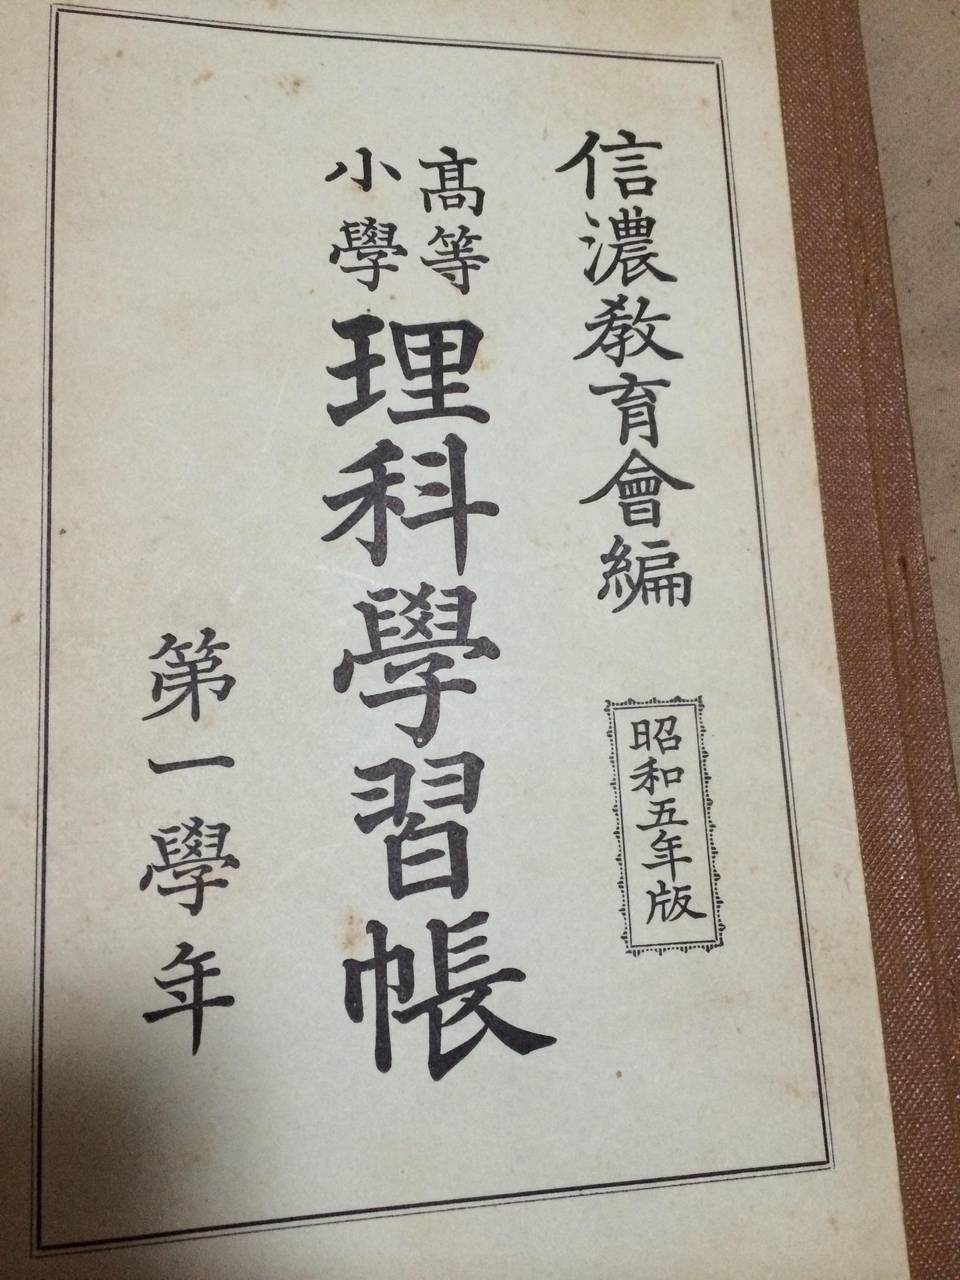 信濃教育會編
昭和五年版
高等
小學
理科學習帳
第一學年